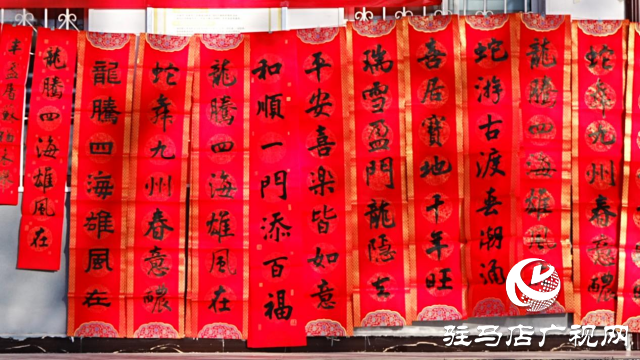 龍騰四海雄風在
龍騰四海雄風在
蛇舞九州春意醲
龍騰四海雄風在
和順一門添百福
平安喜樂皆如意
瑞雪盈門龍隱去
喜居寶地千年旺
蛇游古渡春潮涌
龍騰四海雄風
蛇舞九州春意醲
驻马店广视网